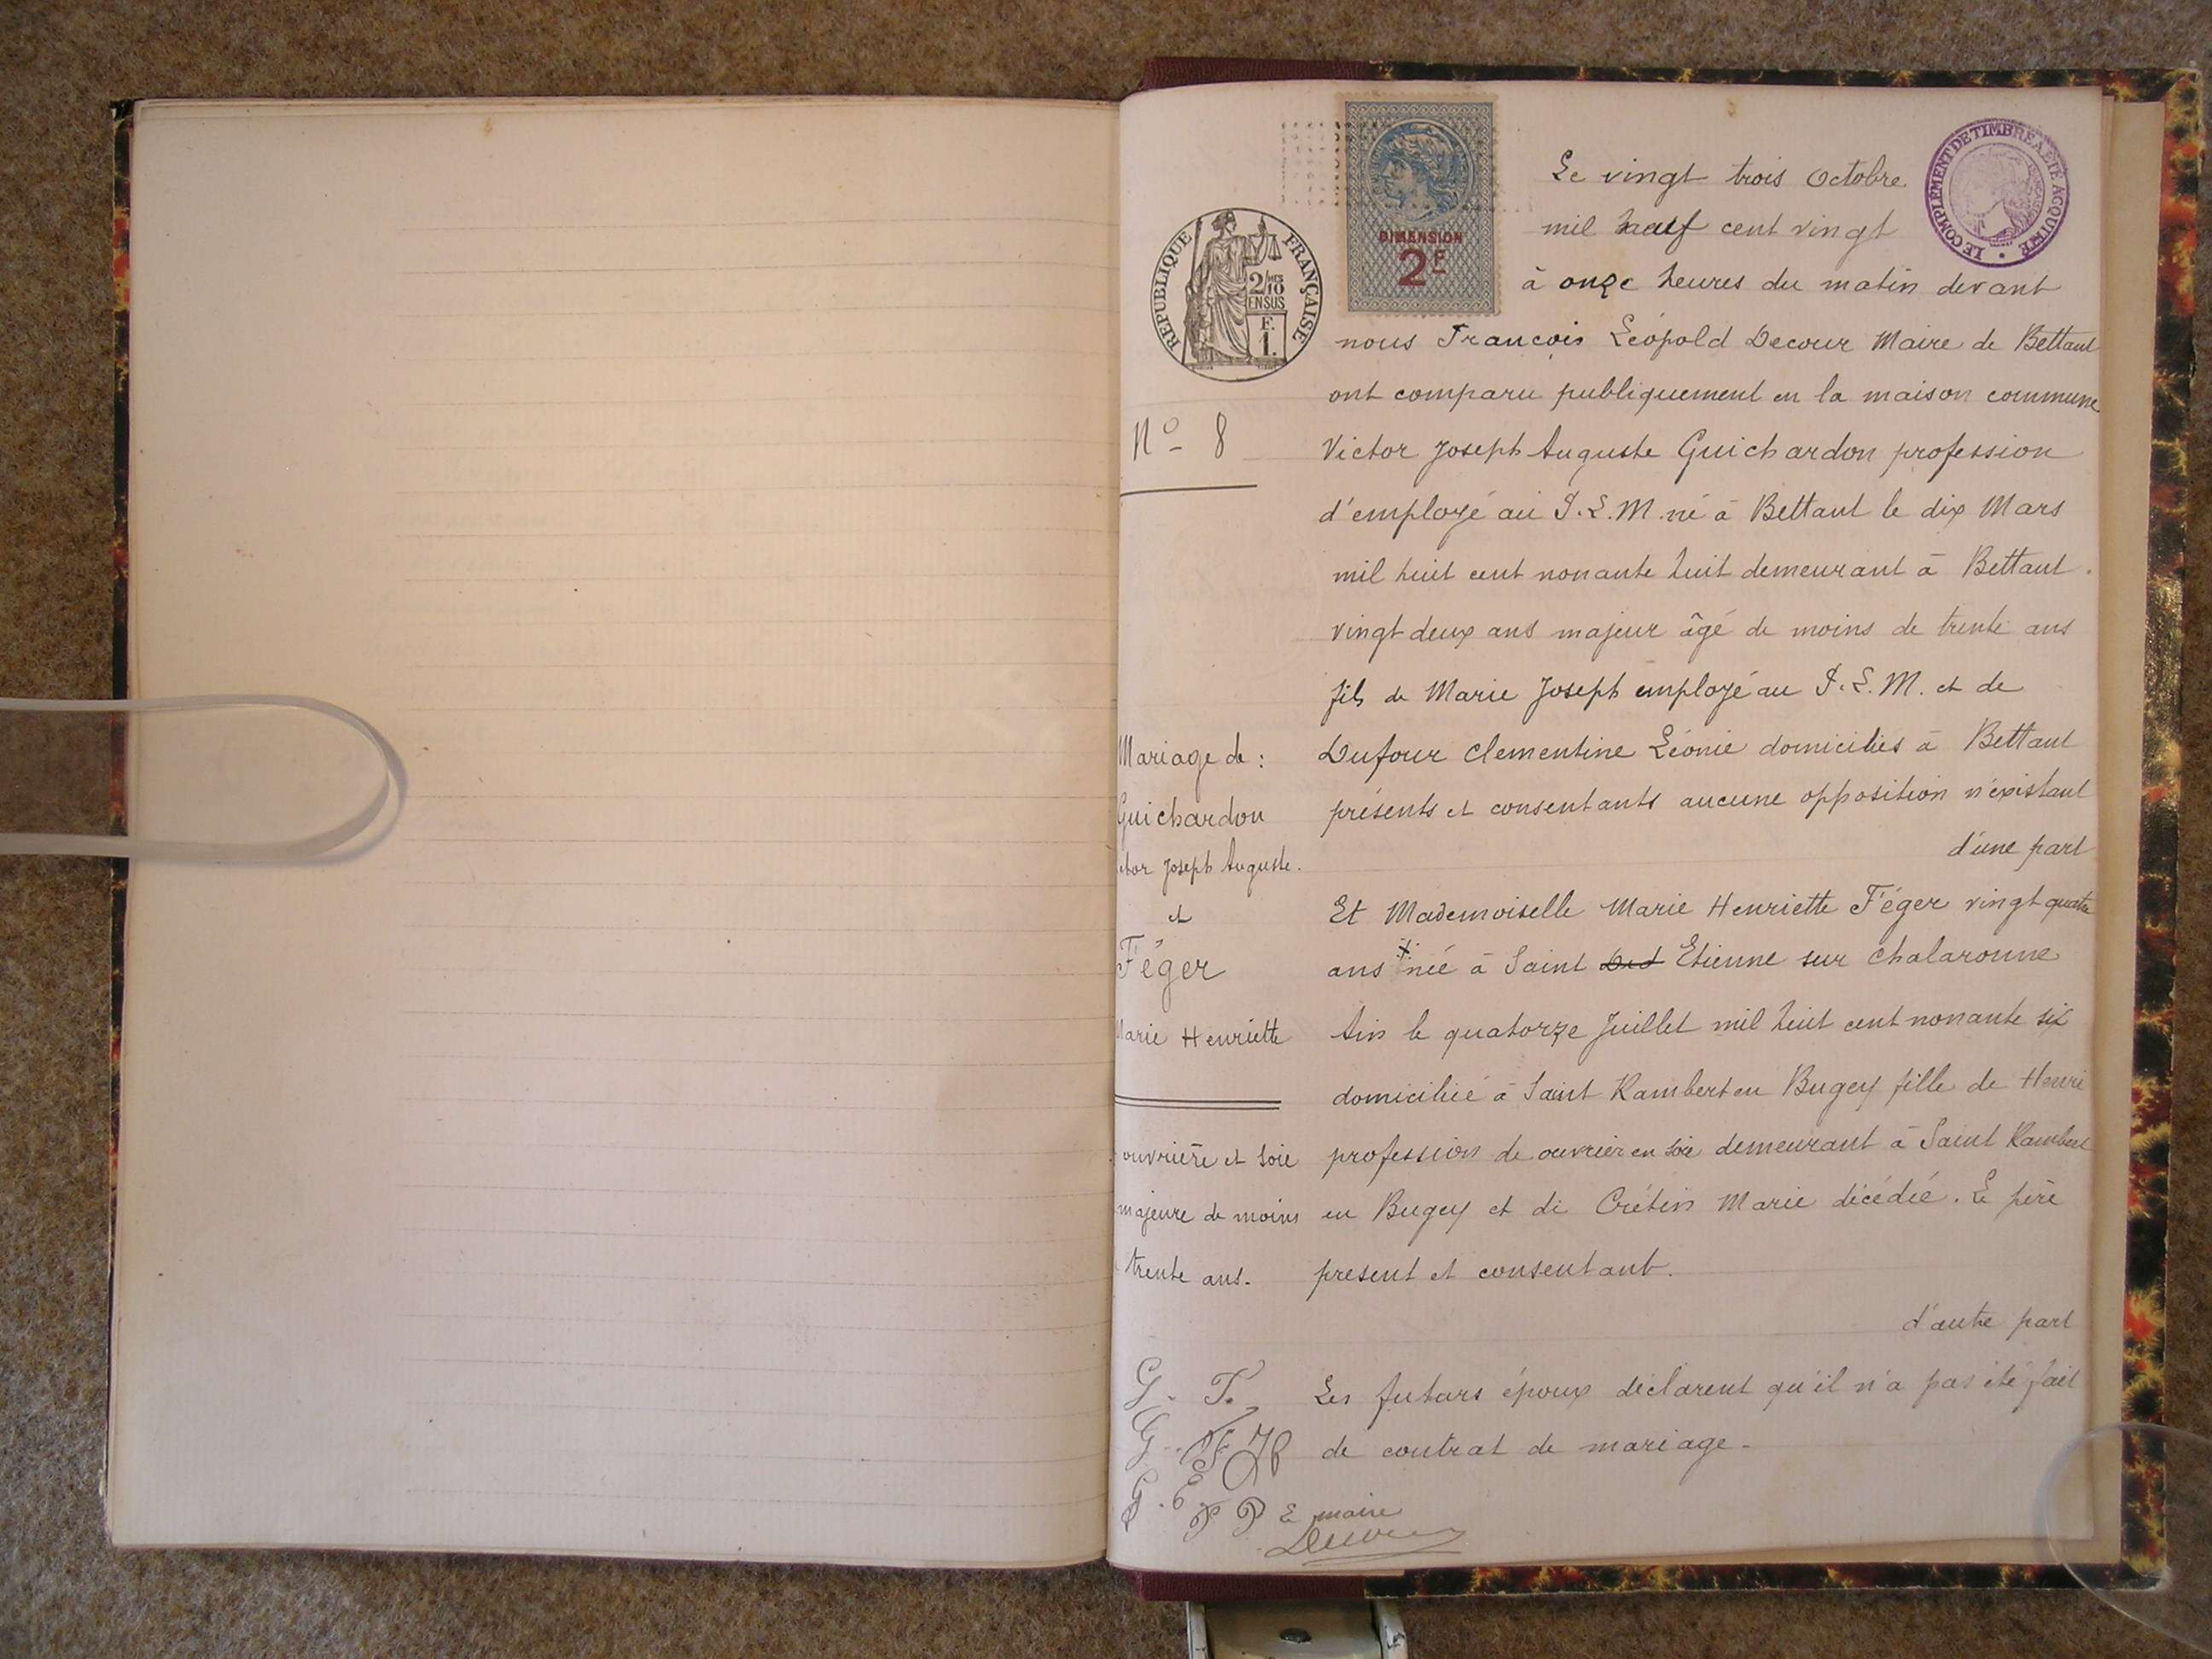 Le vingt trois Octobre
mil neuf cent vingt
à onze heures du matin devant
nous François Léopold Decour Maire de Bettant
ont comparu publiquement en la maison commune
Victor Joseph Auguste Guichardon profession
d'employé au P.L.M. né à Bettant le dix Mars
mil huit cent nonante huit demeurant à Bettant.
vingt deux ans majeur âgé de moins de trente ans
fils de Marie Joseph employé au P.L.M. et de
Dufour Clementine Léonie domiciliés à Bettant
présents et consentants aucune opposition n'éxistant
d'une part
Et Mademoiselle Marie Henriette Féger vingt quatre
ans née à Saint Etienne sur Chalaronne
Ain le quatorze Juillet mil huit cent nonante six
domiciliée à Saint Rambert en Bugey fille de Henri
profession de ouvrier en soie demeurant à Saint Rambert
en Bugey et de Crétin Marie décédée. Le père
present et consentant.
d'autre part
Les futurs époux déclarent qu'il n'a pas été fait
de contrat de mariage.
REPUBLIQUE FRANÇAISE
2/10 EN SUS
F. 1.
DIMENSION
2F
LE COMPLÉMENT DE TIMBRE A ÉTÉ ACQUITTÉ
No 8
Mariage de :
Guichardon
ctor Joseph Auguste.
et
Féger
Marie Henriette
ouvrière et soie
majeure de moins
trente ans.
G. F.
G. F H
G. E
F P Le maire
Decour